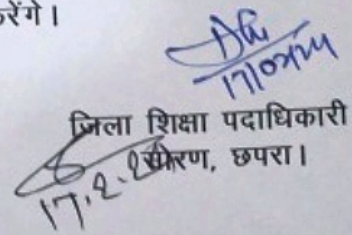 रेंगे।
17/02/24
जिला शिक्षा पदाधिकारी
सारण, छपरा।
17.2.24